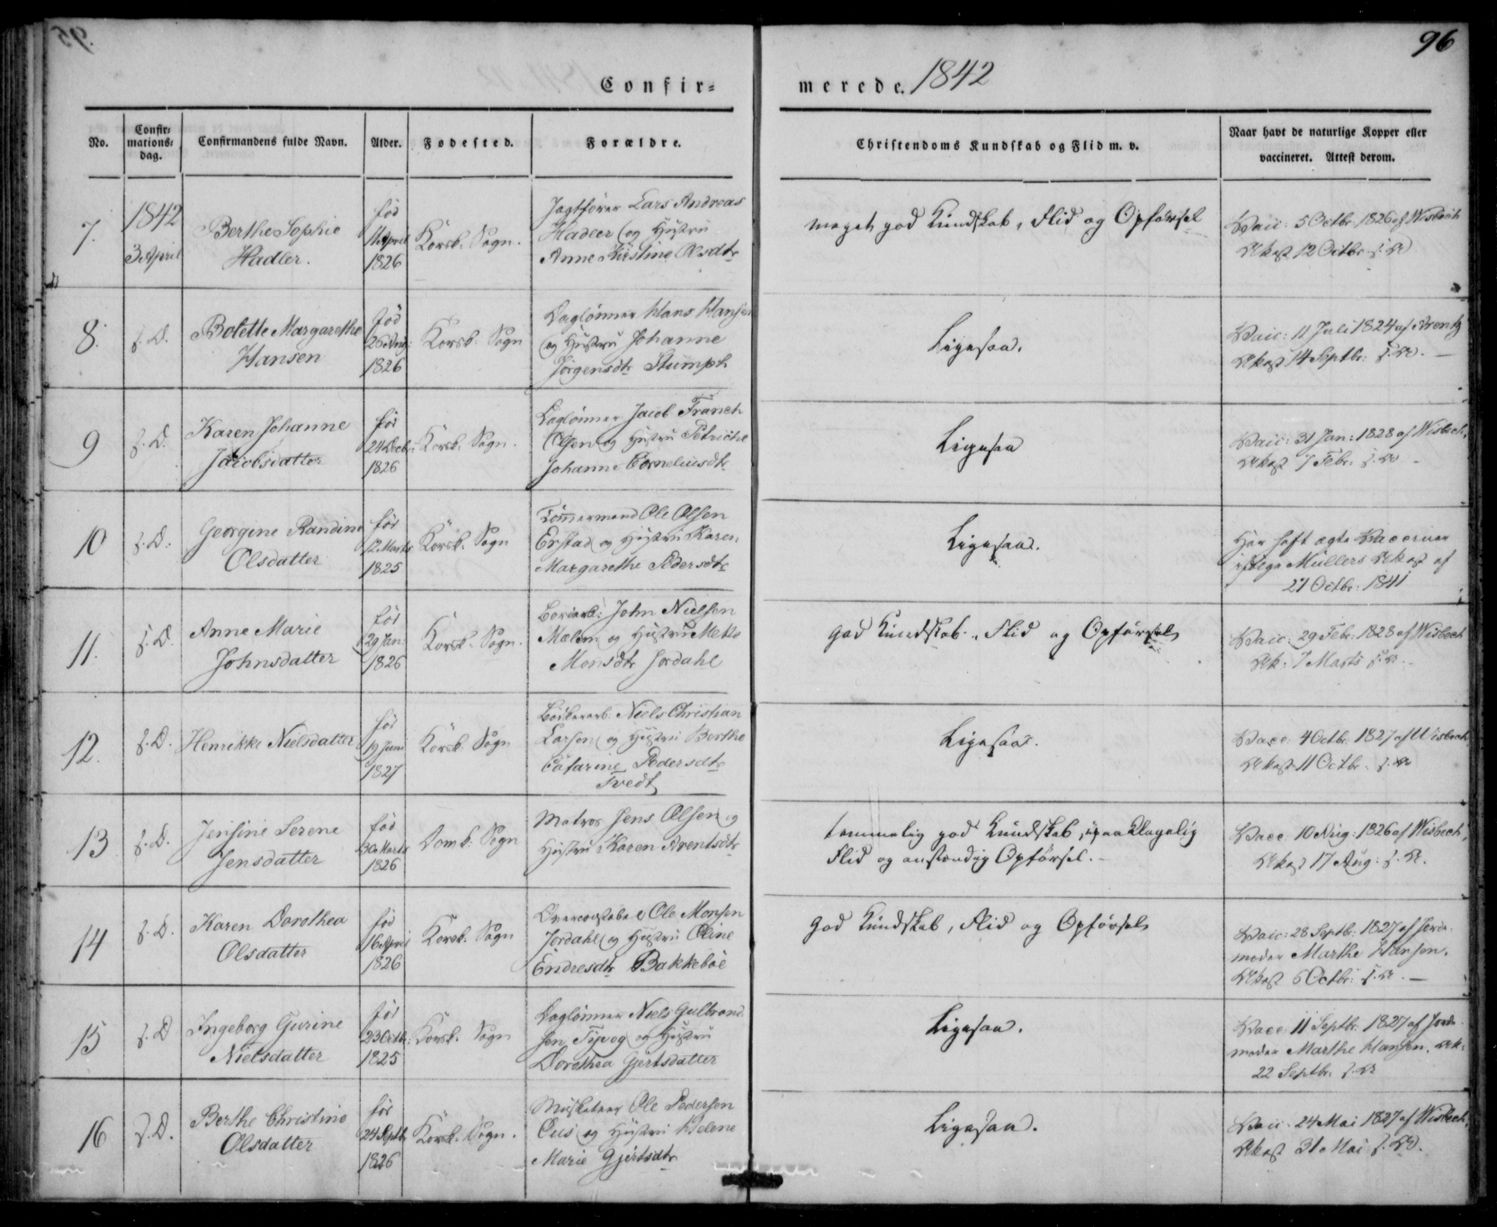 96
Confir= merede. 1842
No.
Confir=
mations=
dag.
Confirmandens fulde Navn.
Alder.
Fødested.
Forældre.
Christendoms Kundskab og Flid m. v.
Naar havt de naturlige Kopper eller
vaccineret. Attest derom.
7.
1842
3 April
Berthe Sophie
Hadler.
fød
April
1826
Korsk. Sogn.
Jagtfører Lars Andreas
Hadler og Hustru
Anne Kirstine Olsdtr
meget god Kundskab, Flid og Opførsel
Vacc: 5 Octbr 1826 af Wisbech
Attest 12 Octbr s. A.
8.
s. D.
Bolette Margarethe
Hansen
fød
26 Aug:
1826
Korsk. Sogn
Daglønner Hans Hansen
og Hustru Johanne
Jørgensdtr Stumph
Ligesaa.
Vacc: 11 Juli 1824 af Arentz
Attest 14 Septbr: s. A. —
9
s. D.
Karen Johanne
Jacobsdatter
fød
24 Decbr:
1826
Korsk. Sogn.
Daglønner Jacob Franch
Olsen og Hustru
Johanne Corneliusdtr
Ligesaa
Vacc: 31 Jan: 1828 af Wisbech,
Attest 7 Febr: s. A. -
10
s. D.
Georgine Randine
Olsdatter
fød
12 Marts
1825
Korsk. Sogn
Tømmermand Ole Olsen
Erstad og Hustru Karen
Margarethe Pedersdtr
Ligesaa.
Har haft ægte Vacciner
ifølge Müllers Attest af
21 Octbr: 1841
11.
s. D.
Anne Marie
Johnsdatter
fød
29 Jan:
1826
Korsk. Sogn.
John Nielsen
og Hustru Mette
Monsdtr Jordahl
god Kundskab, Flid og Opførsel
Vacc: 29 Febr: 1828 af Wisbech
Att: 7 Marts s. A.
12.
s. D.
Henrikke Nielsdatter
fød
19 Juni
1827
Korsk. Sogn
Niels Christian
Larsen og Hustru Berthe
Catarine Pedersdtr
Tvedt
Ligesaa.
Vacc: 4 Octbr. 1827 af Wisbech
Attest 11 Octbr. s. A.
13
s. D.
Jensine Serene
Jensdatter
fød
30 Marts
1826
Domk. Sogn
Matros Jens Olsen og
Hustru Karen Arentsdtr
temmelig god Kundskab, upaaklagelig
Flid og anstændig Opførsel. -
Vacc: 10 Aug: 1826 af Wisbech,
Attest 17 Aug: s. A.
14
s. D.
Karen Dorothea
Olsdatter
fød
16 April
1826
Korsk. Sogn
Ole Monsen
Jordahl og Hustru Oline
Endresdtr Bakkebøe
God Kundskab, Flid og Opførsel
Vacc: 28 Septbr: 1827 af Jord-
moder Marthe Hansen.
Attest 6 Octbr: s. A. —
15
s. D
Ingeborg Gurine
Nielsdatter
fød
23 Octbr:
1825
Korsk. Sogn
Daglønner Niels Gulbrand-
sen og Hustru
Dorothea Gjertsdatter
Ligesaa.
Vacc: 11 Septbr. 1827 af Jord-
moder Marthe Hansen. Att:
22 Septbr. s. A.
16
s. D.
Berthe Christine
Olsdatter
fød
24 Septbr
1826
Korsk. Sogn.
Musketeer Ole Pedersen
og Hustru Helene
Marie Gjertsdtr
Ligesaa.
Vacc: 24 Mai 1827 af Wisbech,
Attest 31 Mai s. A.